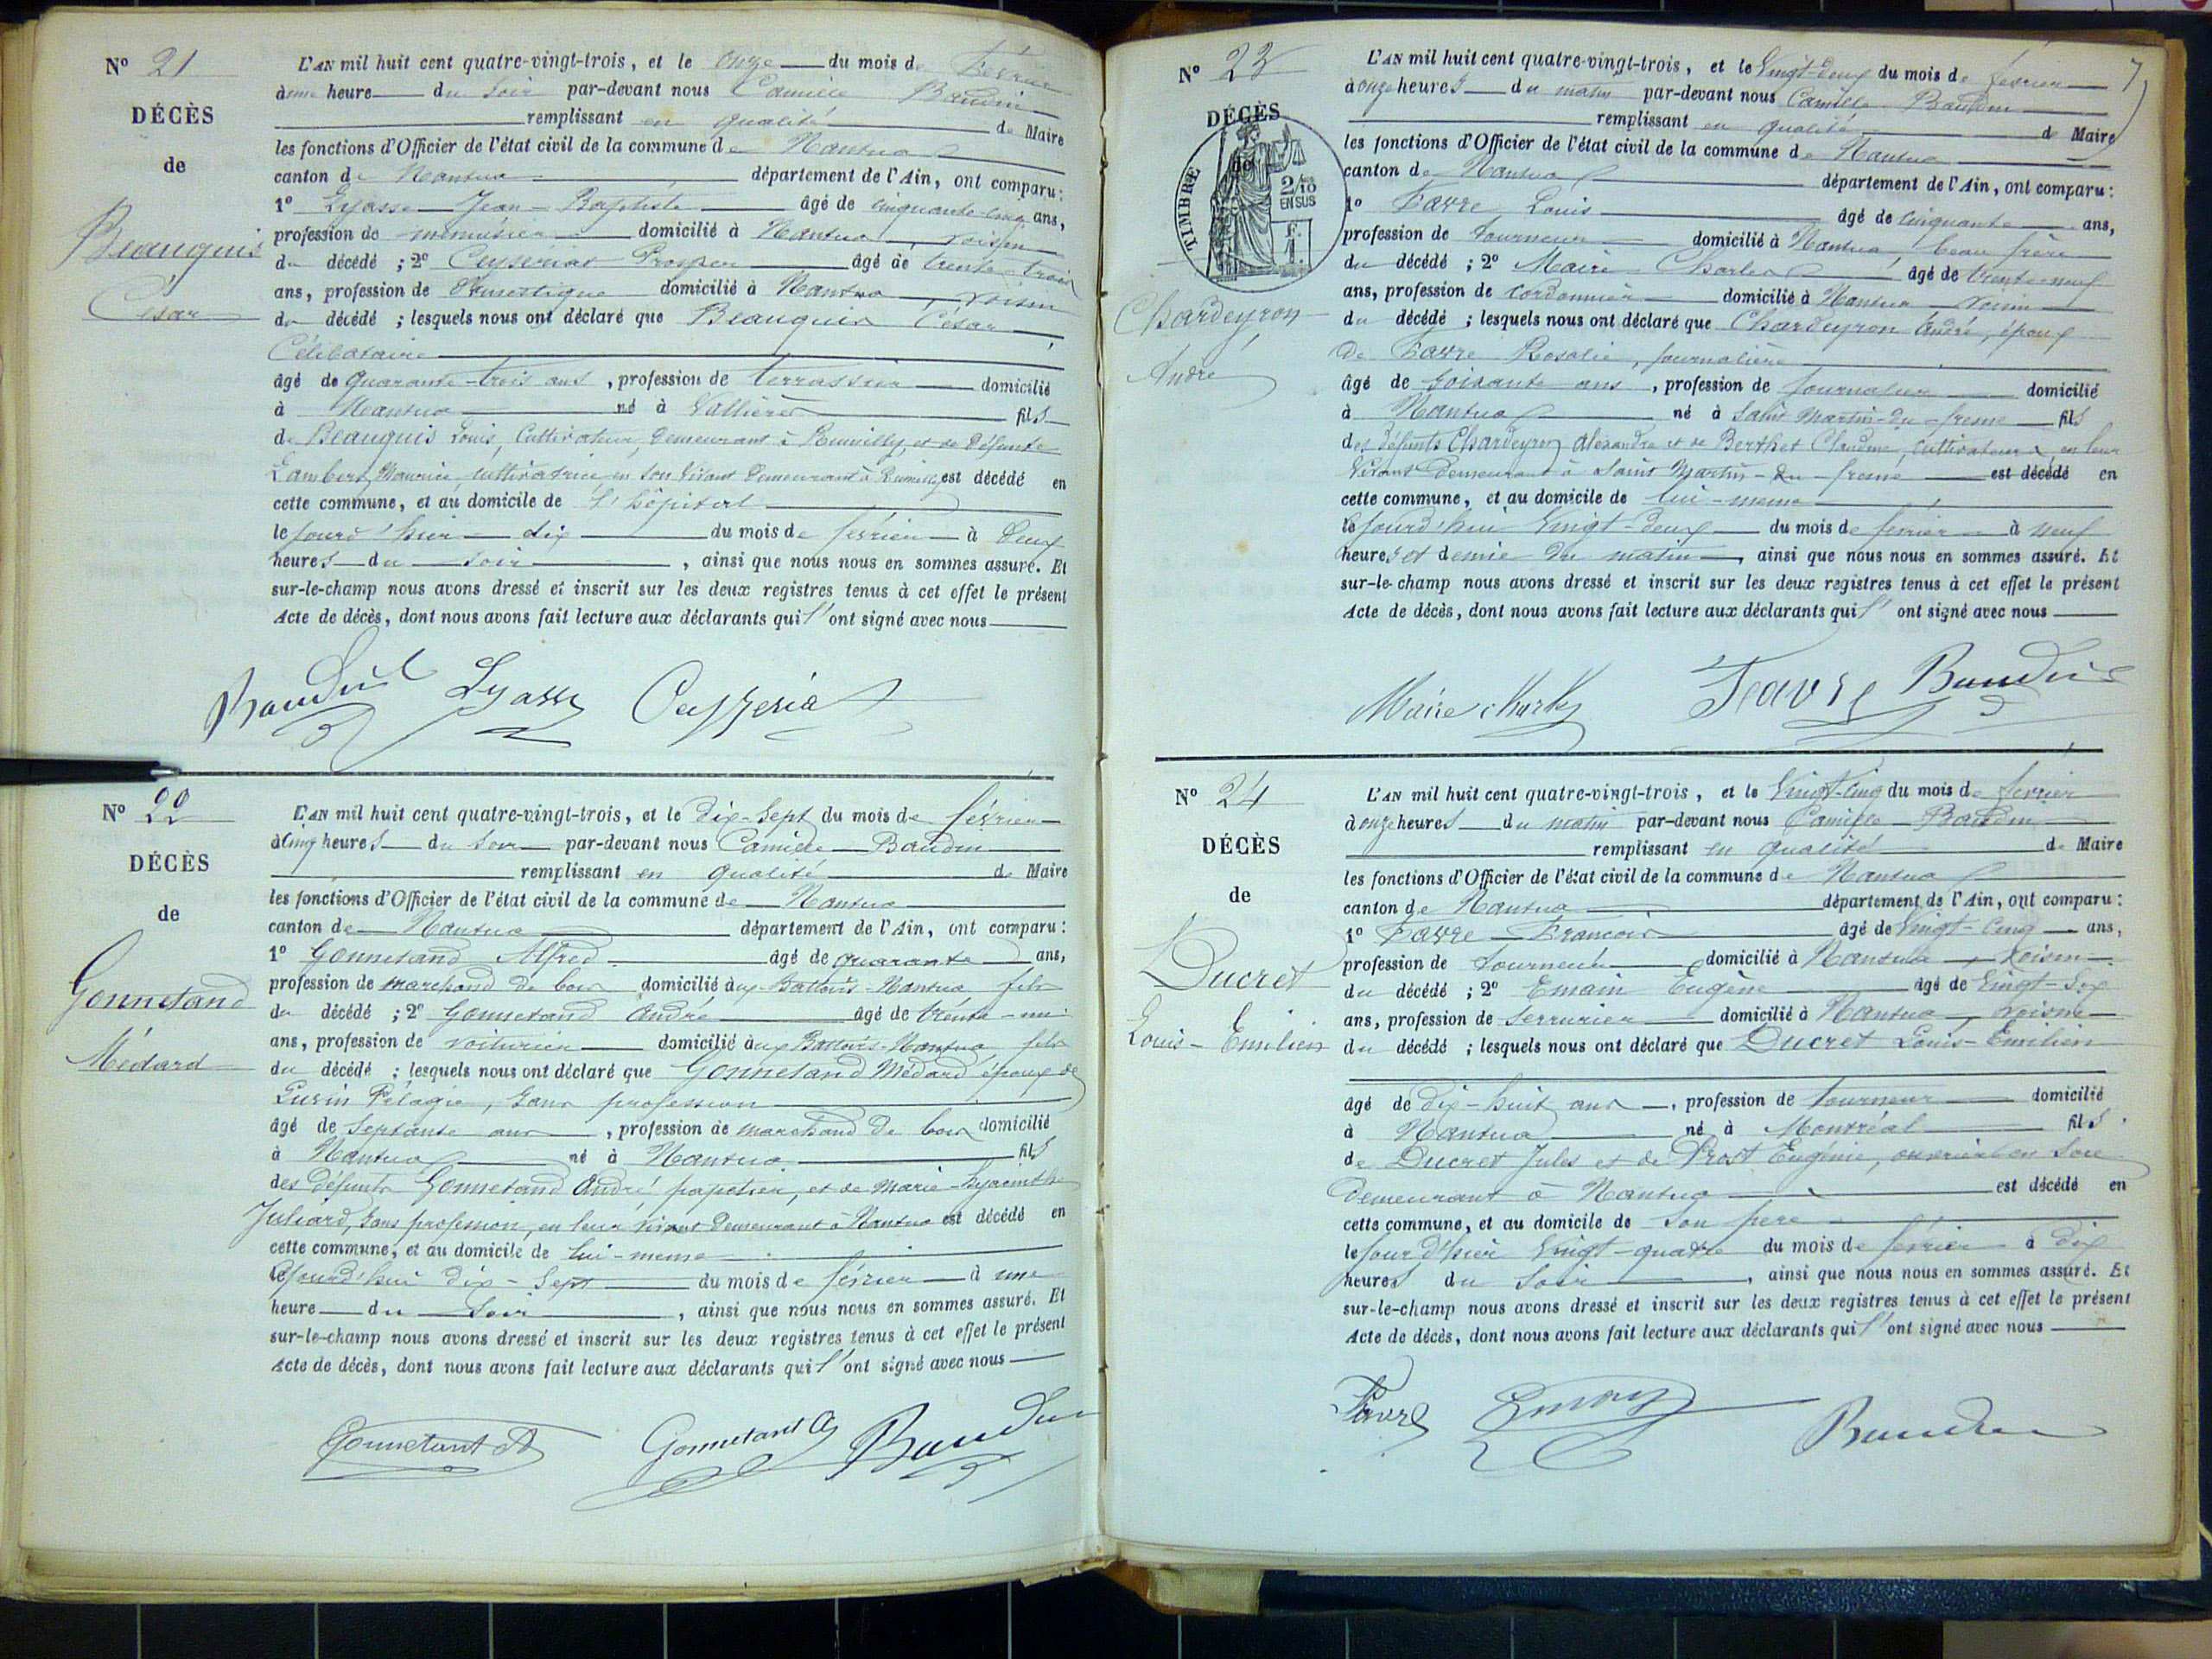 N° 21
DÉCÈS
de
Beauquis
César
L'AN mil huit cent quatre-vingt-trois, et le onze du mois de Février
à une heure du soir par-devant nous Camille Baudin
remplissant en qualité de Maire
les fonctions d'Officier de l'état civil de la commune de Nantua
canton de Nantua département de l'Ain, ont comparu:
1° Lyasse Jean-Baptiste âgé de cinquante-cinq ans,
profession de menuisier domicilié à Nantua, voisin
du décédé ; 2° Cuzsériat Prosper âgé de trente-trois
ans, profession de Domestique domicilié à Nantua, voisin
du décédé ; lesquels nous ont déclaré que Beauquis César
Célibataire
âgé de quarante-trois ans, profession de terrassier domicilié
à Nantua né à Vallières fils
de Beauquis Louis, Cultivateur, demeurant à Rumilly, et de défunte
Lambert, Maurice, cultivatrice en son vivant demeurant à Rumilly est décédé en
cette commune, et au domicile de l'hôpital
le jourd'hier dix du mois de février à deux
heures du soir, ainsi que nous nous en sommes assuré. Et
sur-le-champ nous avons dressé et inscrit sur les deux registres tenus à cet effet le présent
Acte de décès, dont nous avons fait lecture aux déclarants qui l'ont signé avec nous
Baudin Lyasse
N° 22
DÉCÈS
de
Gonnetand
Médard
L'AN mil huit cent quatre-vingt-trois, et le Dix-Sept du mois de février
à cinq heures du soir par-devant nous Camille Baudin
remplissant en qualité de Maire
les fonctions d'Officier de l'état civil de la commune de Nantua
canton de Nantua département de l'Ain, ont comparu:
1° Gonnetand Alfred âgé de quarante ans,
profession de marchand de bois domicilié aux Battoirs-Nantua fils
du décédé ; 2° Gonnetand André âgé de trente-un
ans, profession de voiturier domicilié aux Battoirs-Nantua fils
du décédé ; lesquels nous ont déclaré que Gonnetand Médard époux de
Pélagie, sans profession
âgé de septante ans, profession de marchand de bois domicilié
à Nantua né à Nantua fils
des défunts Gonnetand André papetier, et de Marie-Hyacinthe
Juliard, sans profession, en leur vivant demeurant à Nantua est décédé en
cette commune, et au domicile de lui-même
le jourd'hui dix-sept du mois de février à une
heure du soir, ainsi que nous nous en sommes assuré. Et
sur-le-champ nous avons dressé et inscrit sur les deux registres tenus à cet effet le présent
Acte de décès, dont nous avons fait lecture aux déclarants qui l'ont signé avec nous
Gonnetant A Gonnetant A Baudin
7
N° 23
DÉCÈS
de
TIMBRE
2/10
EN SUS
F.
1.
Chardeyron
André
L'AN mil huit cent quatre-vingt-trois, et le Vingt-deux du mois de février
à onze heures du matin par-devant nous Camille Baudin
remplissant en qualité de Maire
les fonctions d'Officier de l'état civil de la commune de Nantua
canton de Nantua département de l'Ain, ont comparu:
1° Favre Louis âgé de cinquante ans,
profession de tourneur domicilié à Nantua, beau frère
du décédé ; 2° Maire Charles âgé de trente-neuf
ans, profession de cordonnier domicilié à Nantua voisin
du décédé ; lesquels nous ont déclaré que Chardeyron André, époux
de Favre Rosalie, journalière
âgé de soixante ans, profession de journalier domicilié
à Nantua né à Saint Martin-du-fresne fils
des défunts Chardeyron Alexandre et de Berthet Claudine, cultivateurs, en leur
vivant demeurant à Saint Martin-du-fresne est décédé en
cette commune, et au domicile de lui-même
le jourd'hui Vingt-deux du mois de février à neuf
heures et demie du matin, ainsi que nous nous en sommes assuré. Et
sur-le-champ nous avons dressé et inscrit sur les deux registres tenus à cet effet le présent
Acte de décès, dont nous avons fait lecture aux déclarants qui l'ont signé avec nous
Maire Charles Favre Baudin
N° 24
DÉCÈS
de
Ducret
Louis-Emilien
L'AN mil huit cent quatre-vingt-trois, et le Vingt-cinq du mois de février
à onze heures du matin par-devant nous Camille Baudin
remplissant en qualité de Maire
les fonctions d'Officier de l'état civil de la commune de Nantua
canton de Nantua département de l'Ain, ont comparu:
1° Favre François âgé de Vingt-cinq ans,
profession de tourneur domicilié à Nantua, voisin
du décédé ; 2° Emain Eugène âgé de Vingt-Six
ans, profession de serrurier domicilié à Nantua, voisin
du décédé ; lesquels nous ont déclaré que Ducret Louis-Emilien
âgé de dix-huit ans, profession de tourneur domicilié
à Nantua né à Montréal fils
de Ducret Jules et de Prost Eugénie, ouvriers en soie
demeurant à Nantua est décédé en
cette commune, et au domicile de son père
le jour d'hier Vingt-quatre du mois de février à dix
heures du soir, ainsi que nous nous en sommes assuré. Et
sur-le-champ nous avons dressé et inscrit sur les deux registres tenus à cet effet le présent
Acte de décès, dont nous avons fait lecture aux déclarants qui l'ont signé avec nous
Favre Emain Baudin